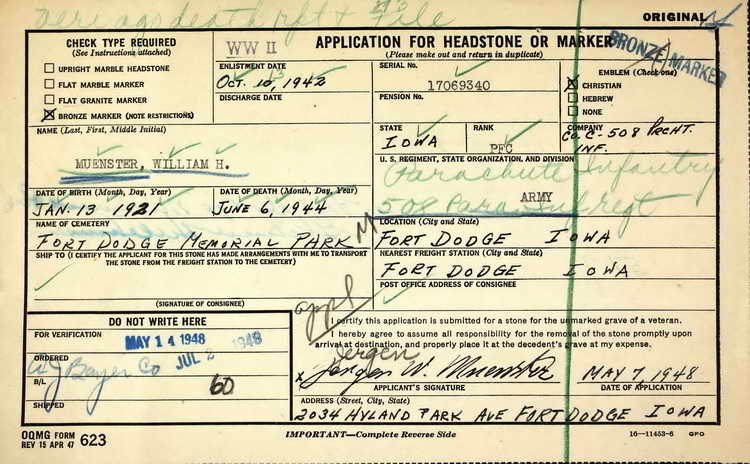 ORIGINAL
CHECK TYPE REQUIRED
(See Instructions attached)
UPRIGHT MARBLE HEADSTONE
FLAT MARBLE MARKER
FLAT GRANITE MARKER
BRONZE MARKER (NOTE RESTRICTIONS)
WW II
ENLISTMENT DATE
OCT. 10, 1942
13
DISCHARGE DATE
APPLICATION FOR HEADSTONE OR MARKER
(Please make out and return in duplicate)
BRONZE MARKER
SERIAL NO.
17069340
PENSION NO.
EMBLEM (Check one)
CHRISTIAN
HEBREW
NONE
NAME (Last, First, Middle Initial)
MUENSTER, WILLIAM H.
STATE
IOWA
RANK
PFC
COMPANY
CO. C - 508 PRCHT.
INF.
U. S. REGIMENT, STATE ORGANIZATION, AND DIVISION
Parachute Infantry
ARMY
508 Para
DATE OF BIRTH (Month, Day, Year)
JAN. 13 1921
DATE OF DEATH (Month, Day, Year)
JUNE 6, 1944
NAME OF CEMETERY
FORT DODGE MEMORIAL PARK
LOCATION (City and State)
FORT DODGE IOWA
SHIP TO (I CERTIFY THE APPLICANT FOR THIS STONE HAS MADE ARRANGEMENTS WITH ME TO TRANSPORT
THE STONE FROM THE FREIGHT STATION TO THE CEMETERY)
NEAREST FREIGHT STATION (City and State)
FORT DODGE IOWA
POST OFFICE ADDRESS OF CONSIGNEE
(SIGNATURE OF CONSIGNEE)
appl
DO NOT WRITE HERE
FOR VERIFICATION
MAY 14 1948
JUL 2 1948
ORDERED
B/L
60
SHIPPED
I certify this application is submitted for a stone for the unmarked grave of a veteran.
I hereby agree to assume all responsibility for the removal of the stone promptly upon
arrival at destination, and properly place it at the decedent's grave at my expense.
Jergen
x Jergen W. Muenster
MAY 7, 1948
APPLICANT'S SIGNATURE
DATE OF APPLICATION
ADDRESS (Street, City, State)
2034 HYLAND PARK AVE FORT DODGE IOWA
OQMG FORM
REV 15 APR 47
623
IMPORTANT—Complete Reverse Side
16—11453-6 GPO